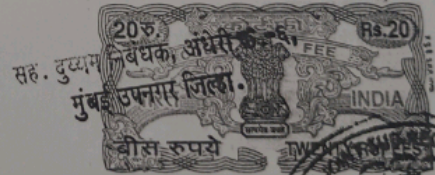 20रु. Rs.20
सह. दुय्यम निबंधक, अंधेरी क्र.-६,
FEE
मुंबई उपनगर जिल्हा.
INDIA
बीस रुपये TWENTY RUPEES